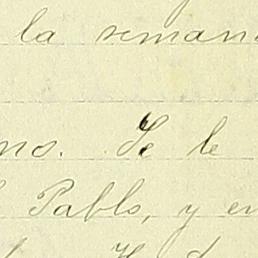 la seman
no. Se le
Pablo, y en